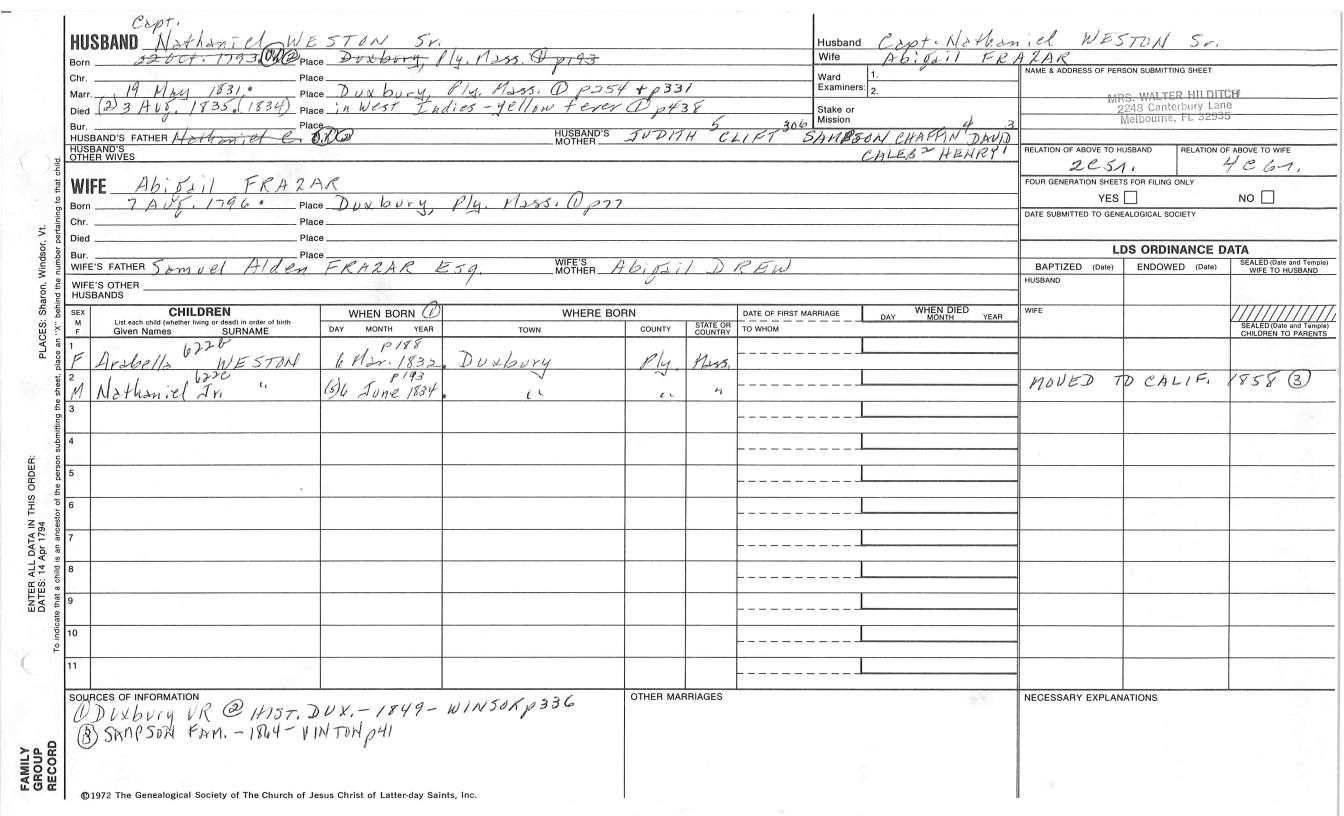 Capt.
HUSBAND Nathaniel WESTON Sr.
Born 22 Oct. 1793 Place Duxbury, Ply. Mass. ① p193
Chr. Place
Marr. 19 May 1831. Place Duxbury, Ply. Mass. ① p254 + p331
Died (2) 3 Aug. 1835. (1834) Place in West Indies - yellow fever ① p438
Bur. Place
HUSBAND'S FATHER Nathaniel C. HUSBAND'S MOTHER JUDITH 5 CLIFT 306 SAMPSON CHAFFIN 4 DAVID 3
CALEB 2 HENRY 1
HUSBAND'S OTHER WIVES
Husband Capt. Nathaniel WESTON Sr.
Wife Abigail FRAZAR
Ward Examiners: 1. 2.
Stake or Mission
NAME & ADDRESS OF PERSON SUBMITTING SHEET
MRS. WALTER HILDITCH
2248 Canterbury Lane
Melbourne, FL 32935
RELATION OF ABOVE TO HUSBAND RELATION OF ABOVE TO WIFE
2C5r. 4C6r.
FOUR GENERATION SHEETS FOR FILING ONLY
YES NO
DATE SUBMITTED TO GENEALOGICAL SOCIETY
WIFE Abigail FRAZAR
Born 7 Aug. 1796. Place Duxbury, Ply. Mass. ① p77
Chr. Place
Died Place
Bur. Place
WIFE'S FATHER Samuel Alden FRAZAR Esq. WIFE'S MOTHER Abigail DREW
WIFE'S OTHER HUSBANDS
LDS ORDINANCE DATA
BAPTIZED (Date) ENDOWED (Date) SEALED (Date and Temple) WIFE TO HUSBAND
HUSBAND
WIFE
SEALED (Date and Temple) CHILDREN TO PARENTS
SEX M F
CHILDREN
List each child (whether living or dead) in order of birth
Given Names SURNAME
WHEN BORN ①
DAY MONTH YEAR
WHERE BORN
TOWN COUNTY STATE OR COUNTRY
DATE OF FIRST MARRIAGE
TO WHOM
WHEN DIED
DAY MONTH YEAR
622b p188
1 F Arabella WESTON 6 Mar. 1832. Duxbury Ply. Mass.
622c p193
2 M Nathaniel Jr. " (3)6 June 1834. " " " MOVED TO CALIF. 1858 ③
3
4
5
6
7
8
9
10
11
SOURCES OF INFORMATION
① Duxbury VR ② HIST. DUX. - 1849 - WINSOR p336
③ SAMPSON FAM. - 1864 - VINTON p41
OTHER MARRIAGES
NECESSARY EXPLANATIONS
©1972 The Genealogical Society of The Church of Jesus Christ of Latter-day Saints, Inc.
FAMILY GROUP RECORD
ENTER ALL DATA IN THIS ORDER:
DATES: 14 Apr 1794
PLACES: Sharon, Windsor, Vt.
To indicate that a child is an ancestor of the person submitting the sheet, place an "X" behind the number pertaining to that child.